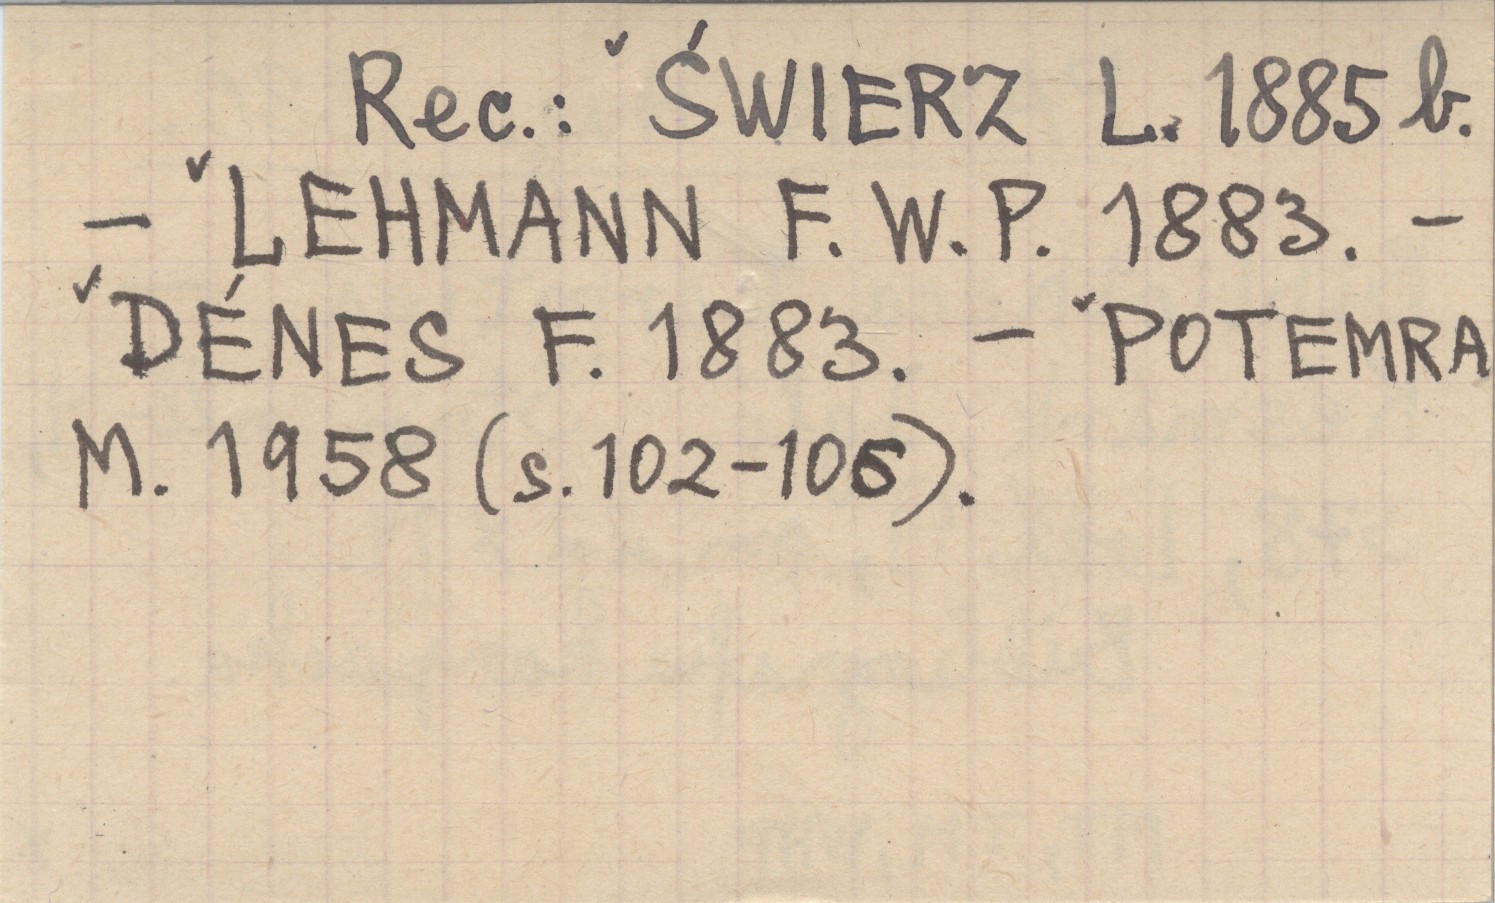 Rec.: ˇŚWIERZ L. 1885 b.
– ˇLEHMANN F. W. P. 1883. –
ˇDÉNES F. 1883. – ˇPOTEMRA
M. 1958 (s. 102-106).